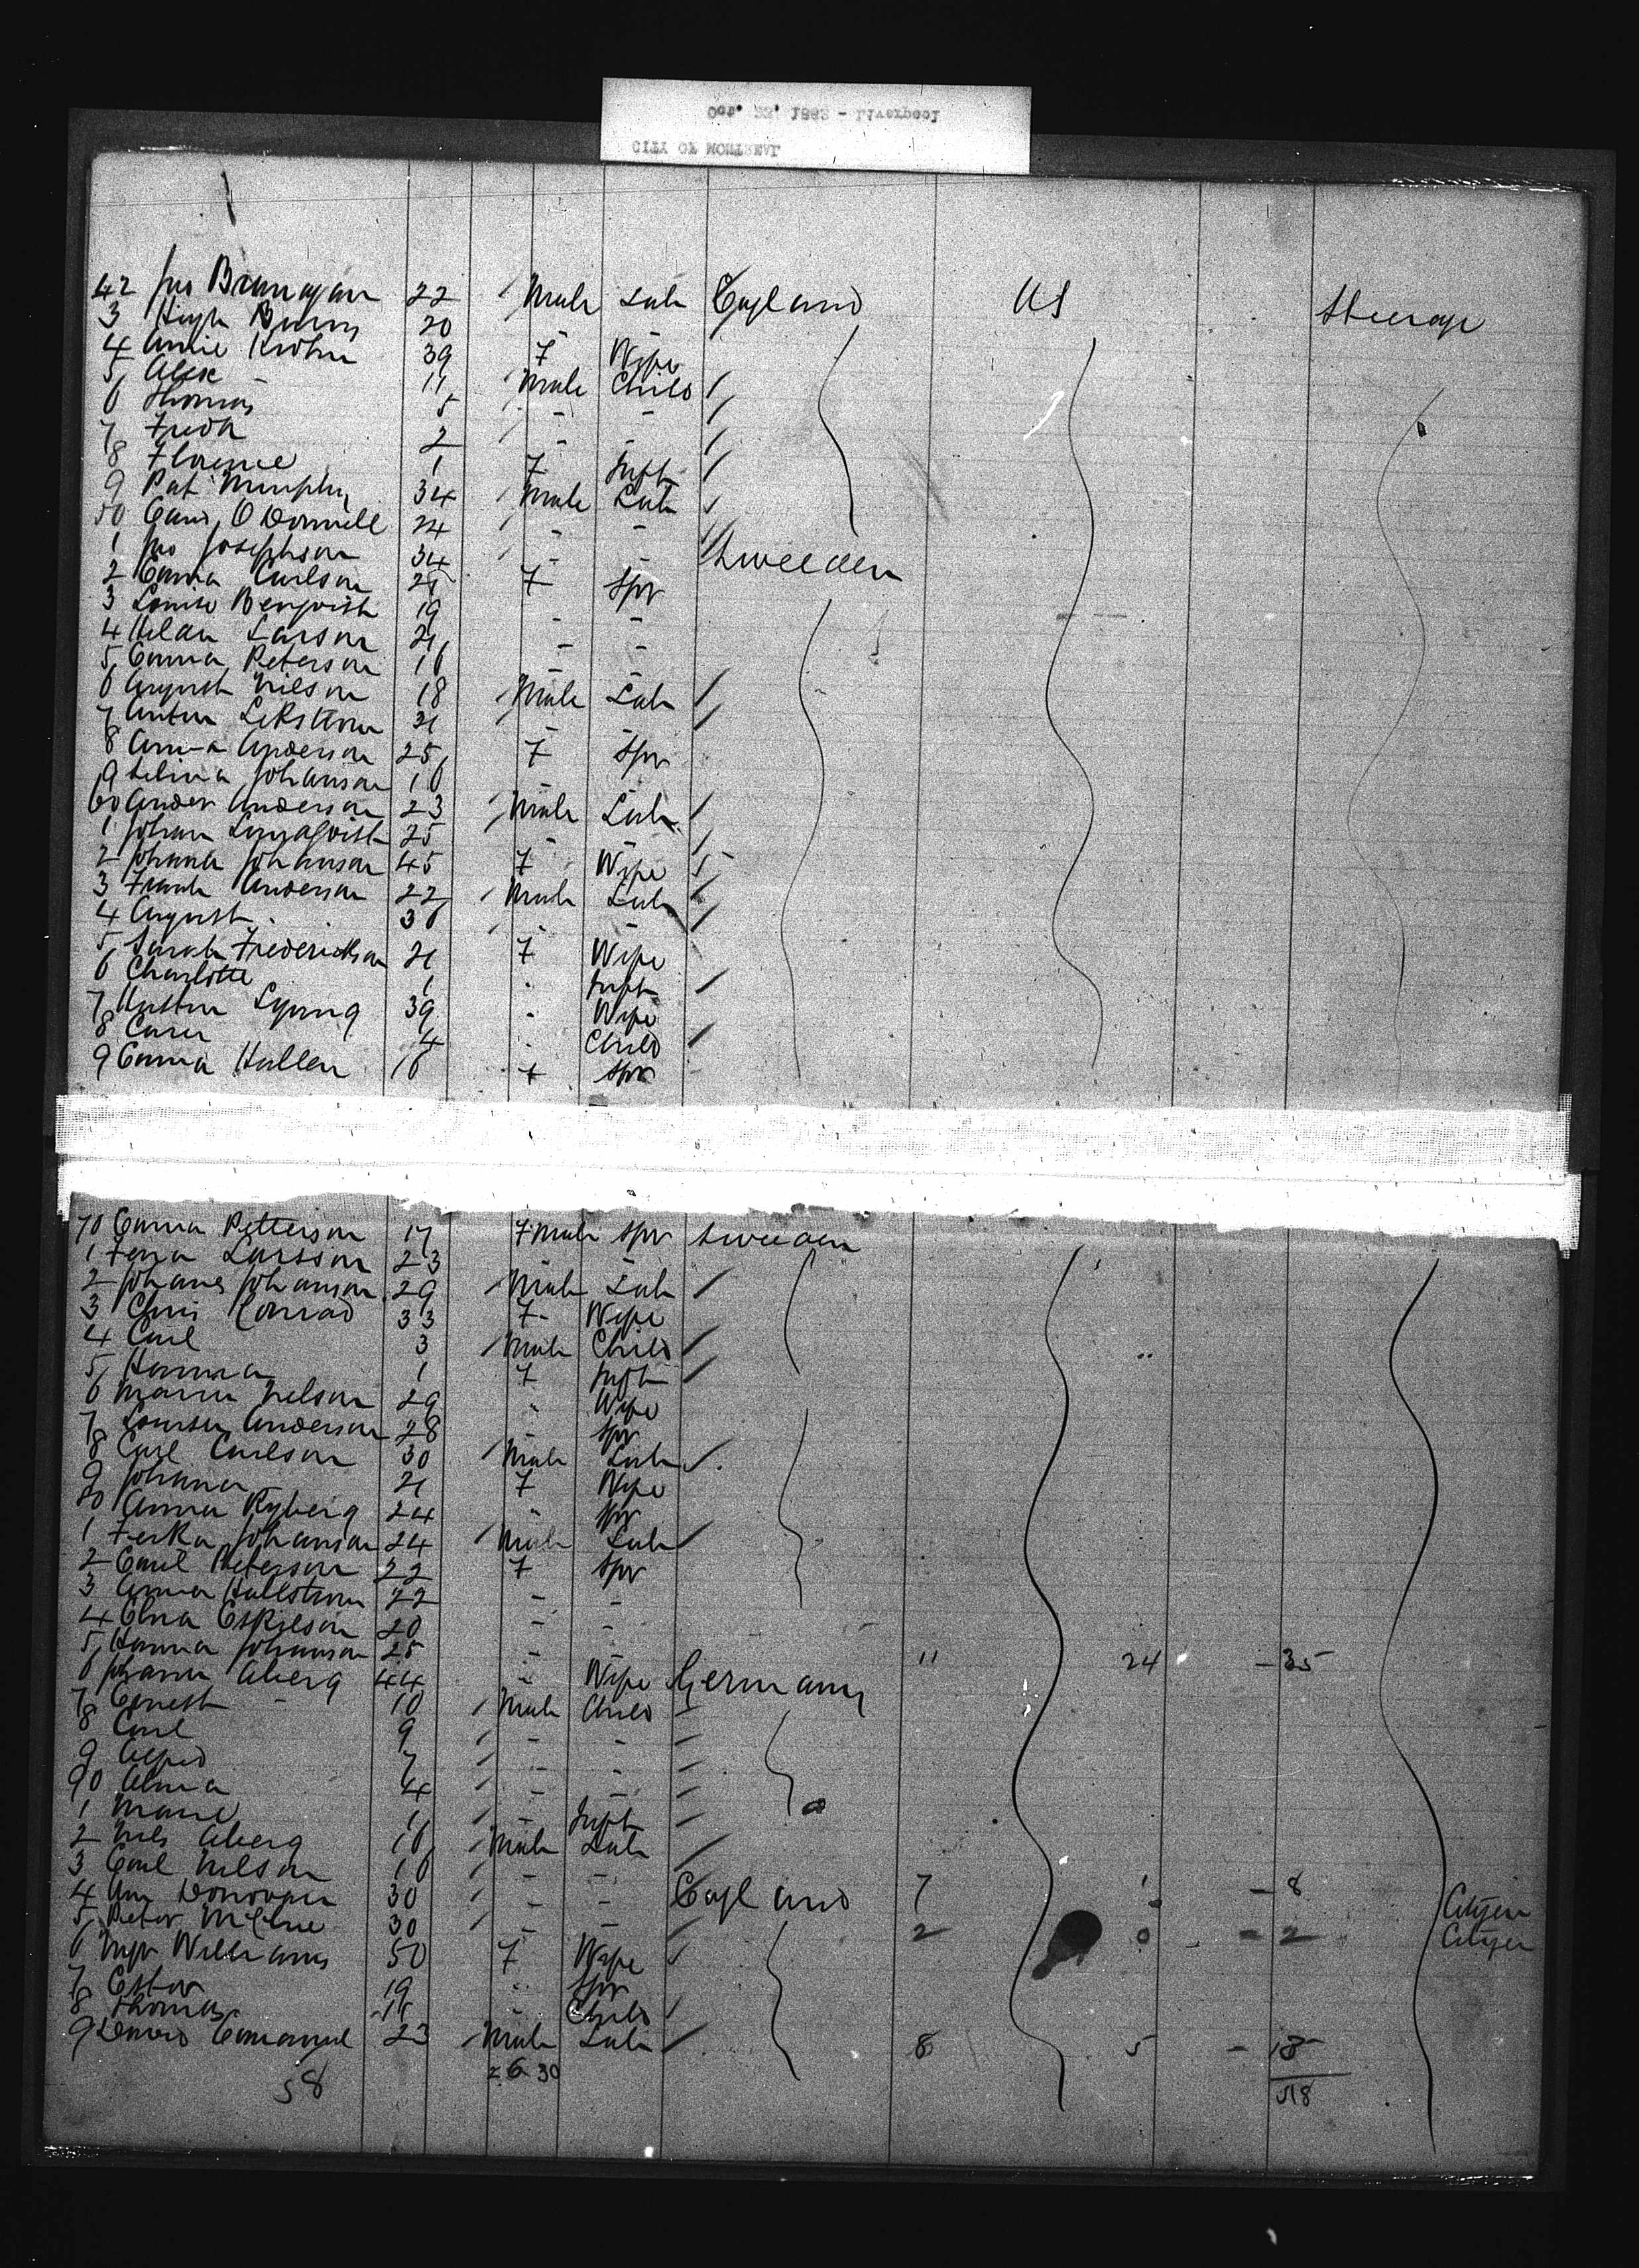 Oct. 22, 1883 - Liverpool
CITY OF MONTREAL
42 Jno Brannagan 22 Male Lab England US Steerage
3 Hugh Burns 20
4 Annie Krohn 39 F Wife
5 Alex - 11 Male Child
6 Thomas 5 - -
7 Fredk 2 - -
8 Florence 1 F Inft
9 Pat Murphy 34 Male Lab
50 O'Donnell 24 - -
1 Jno Josephson 34 - - Sweeden
2 Emma Carlson 25 F Spr
3 Louise Benquist 19
4 Larson 21 - -
5 Emma Peterson 16
6 August Nilson 18 Male Lab
7 Anton 21
8 Anna Anderson 25 F Spr
9 Selina Johanson 16
60 Ander Anderson 23 Male Lab
1 Johan 25
2 Johana Johanson 45 F Wife
3 Frank Anderson 22 Male Lab
4 August 36
5 Sarah Fredericksen 21 F Wife
6 Charlotte 1 Inft
7 39 Wife
8 4 Child
9 Emma Hallen 16 F Spr
70 Emma Petterson 17 F Male Spr Sweeden
1 Larsson 23
2 Johanes Johanson 29 Male Lab
3 Chris Conrad 33 F Wife
4 Carl 3 Male Child
5 Hanna 1 F Inft
6 Maria Nelson 29 Wife
7 Lourisa Anderson 28 Spr
8 Carl Carlson 30 Male Lab
9 Johana 21 F Wife
80 Anna Ryberg 24 Spr
1 Johanson 24 Male Lab
2 Emil Peterson 22 F Spr
3 Anna Hallstrom 22
4 Elna Eskilson 20 - -
5 Hanna Johanson 25 - 11 24 - 35
6 Johana Aberg 44 Wife Germany
7 Ernest - 10 Male Child
8 Carl 9 - -
9 Alfred 7 - -
90 Alma 4 - -
1 1 - Inft
2 Nils Aberg 16 Male Lab
3 Carl Nilson 16 - -
4 Donovan 30 - - England 7 1 - 8 Citizen
5 Peter 30 - - 2 0 - 2 Citizen
6 Williams 50 F Wife
7 Ester 19 Spr
8 Thomas 11 Child
9 David Emanuel 23 Male Lab 8 5 - 13
58 26 30 58